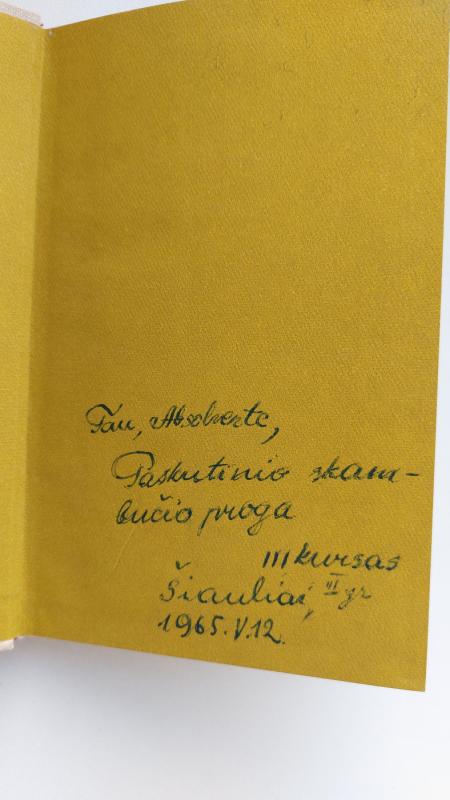 Tau, Absolvente,
Paskutinio skam-
bučio proga
III kursas
Šiauliai, VI gr
1965.V.12.